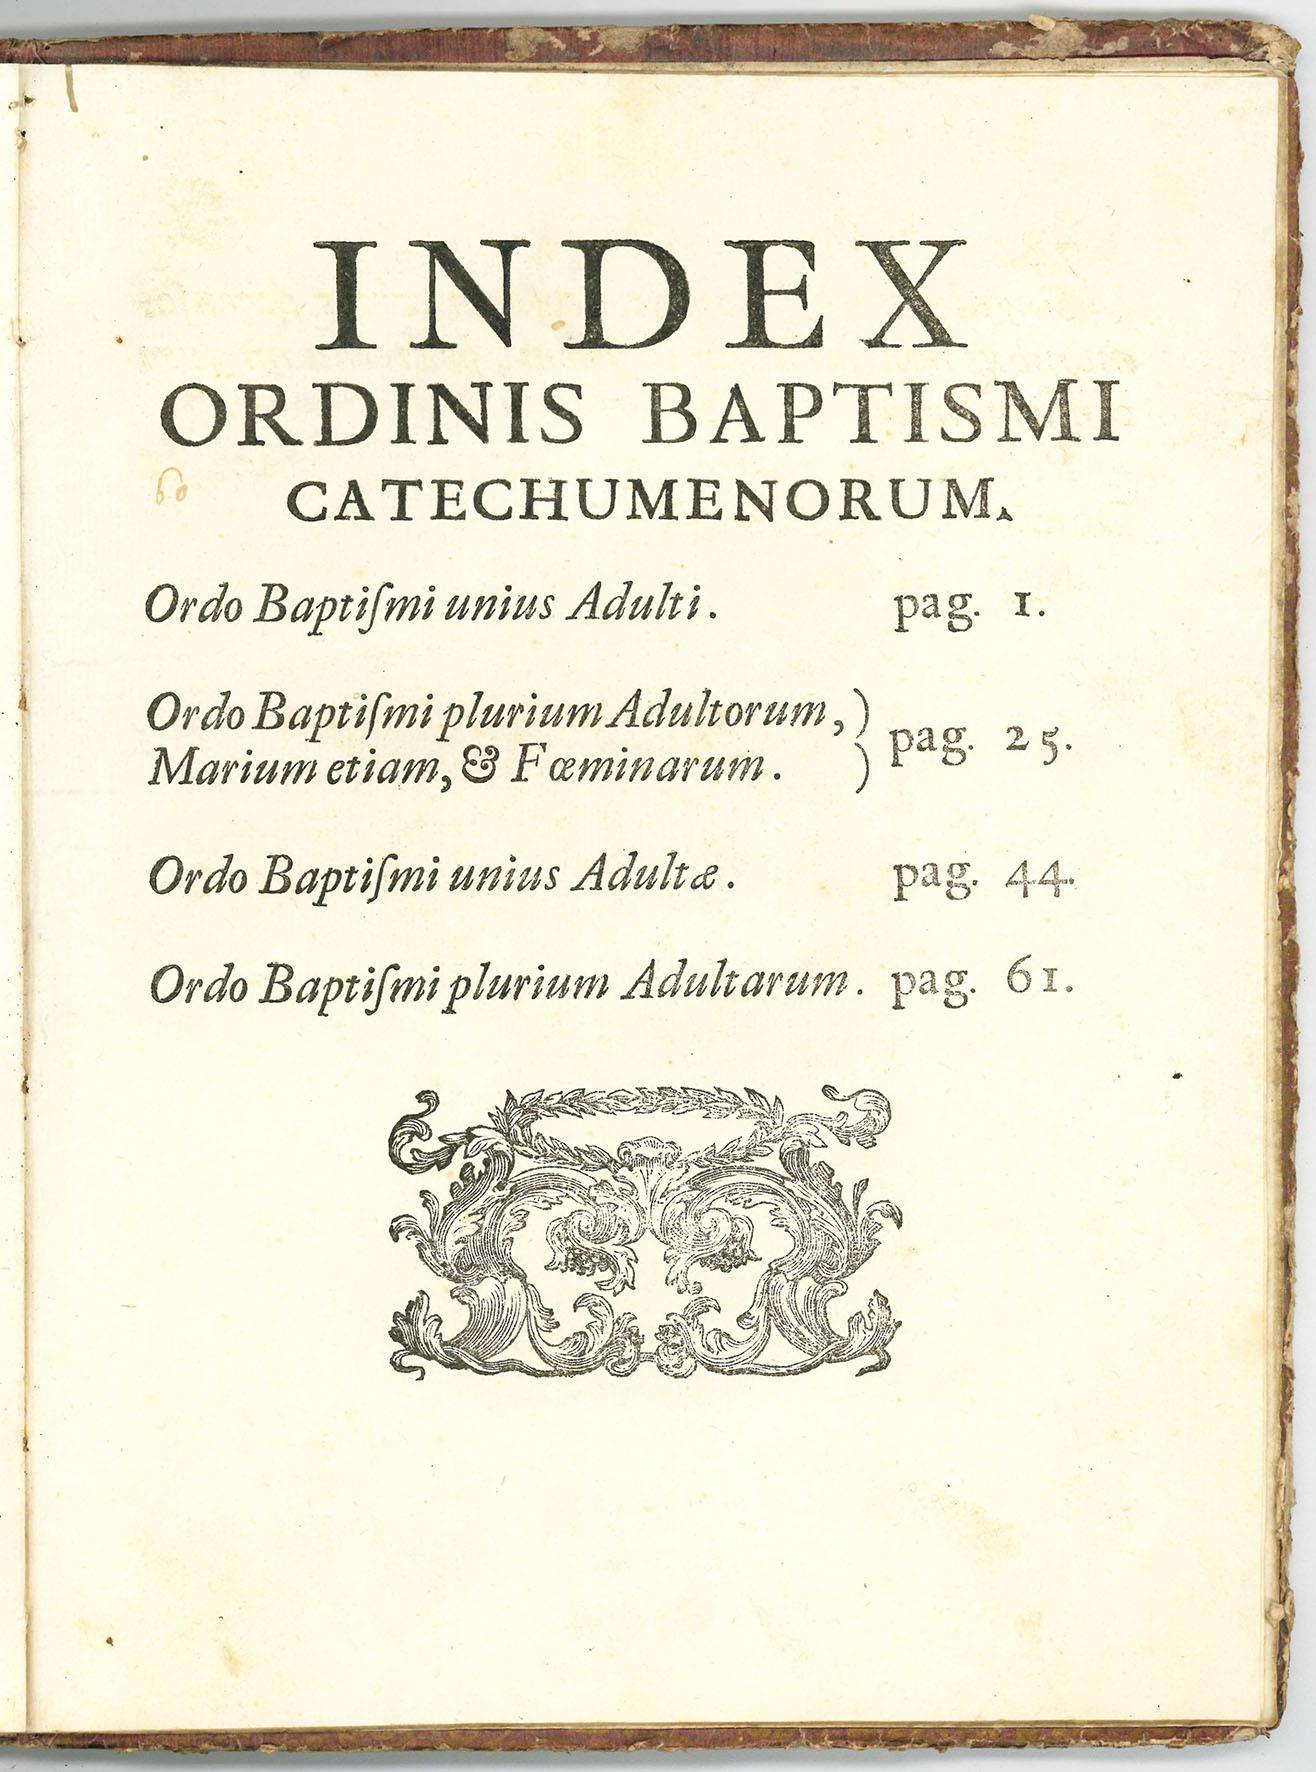 INDEX
ORDINIS BAPTISMI
60
CATECHUMENORUM.
Ordo Baptiſmi unius Adulti. pag. 1.
Ordo Baptiſmi plurium Adultorum, )
Marium etiam, & Fœminarum. ) pag. 25.
Ordo Baptiſmi unius Adultæ. pag. 44.
Ordo Baptiſmi plurium Adultarum. pag. 61.